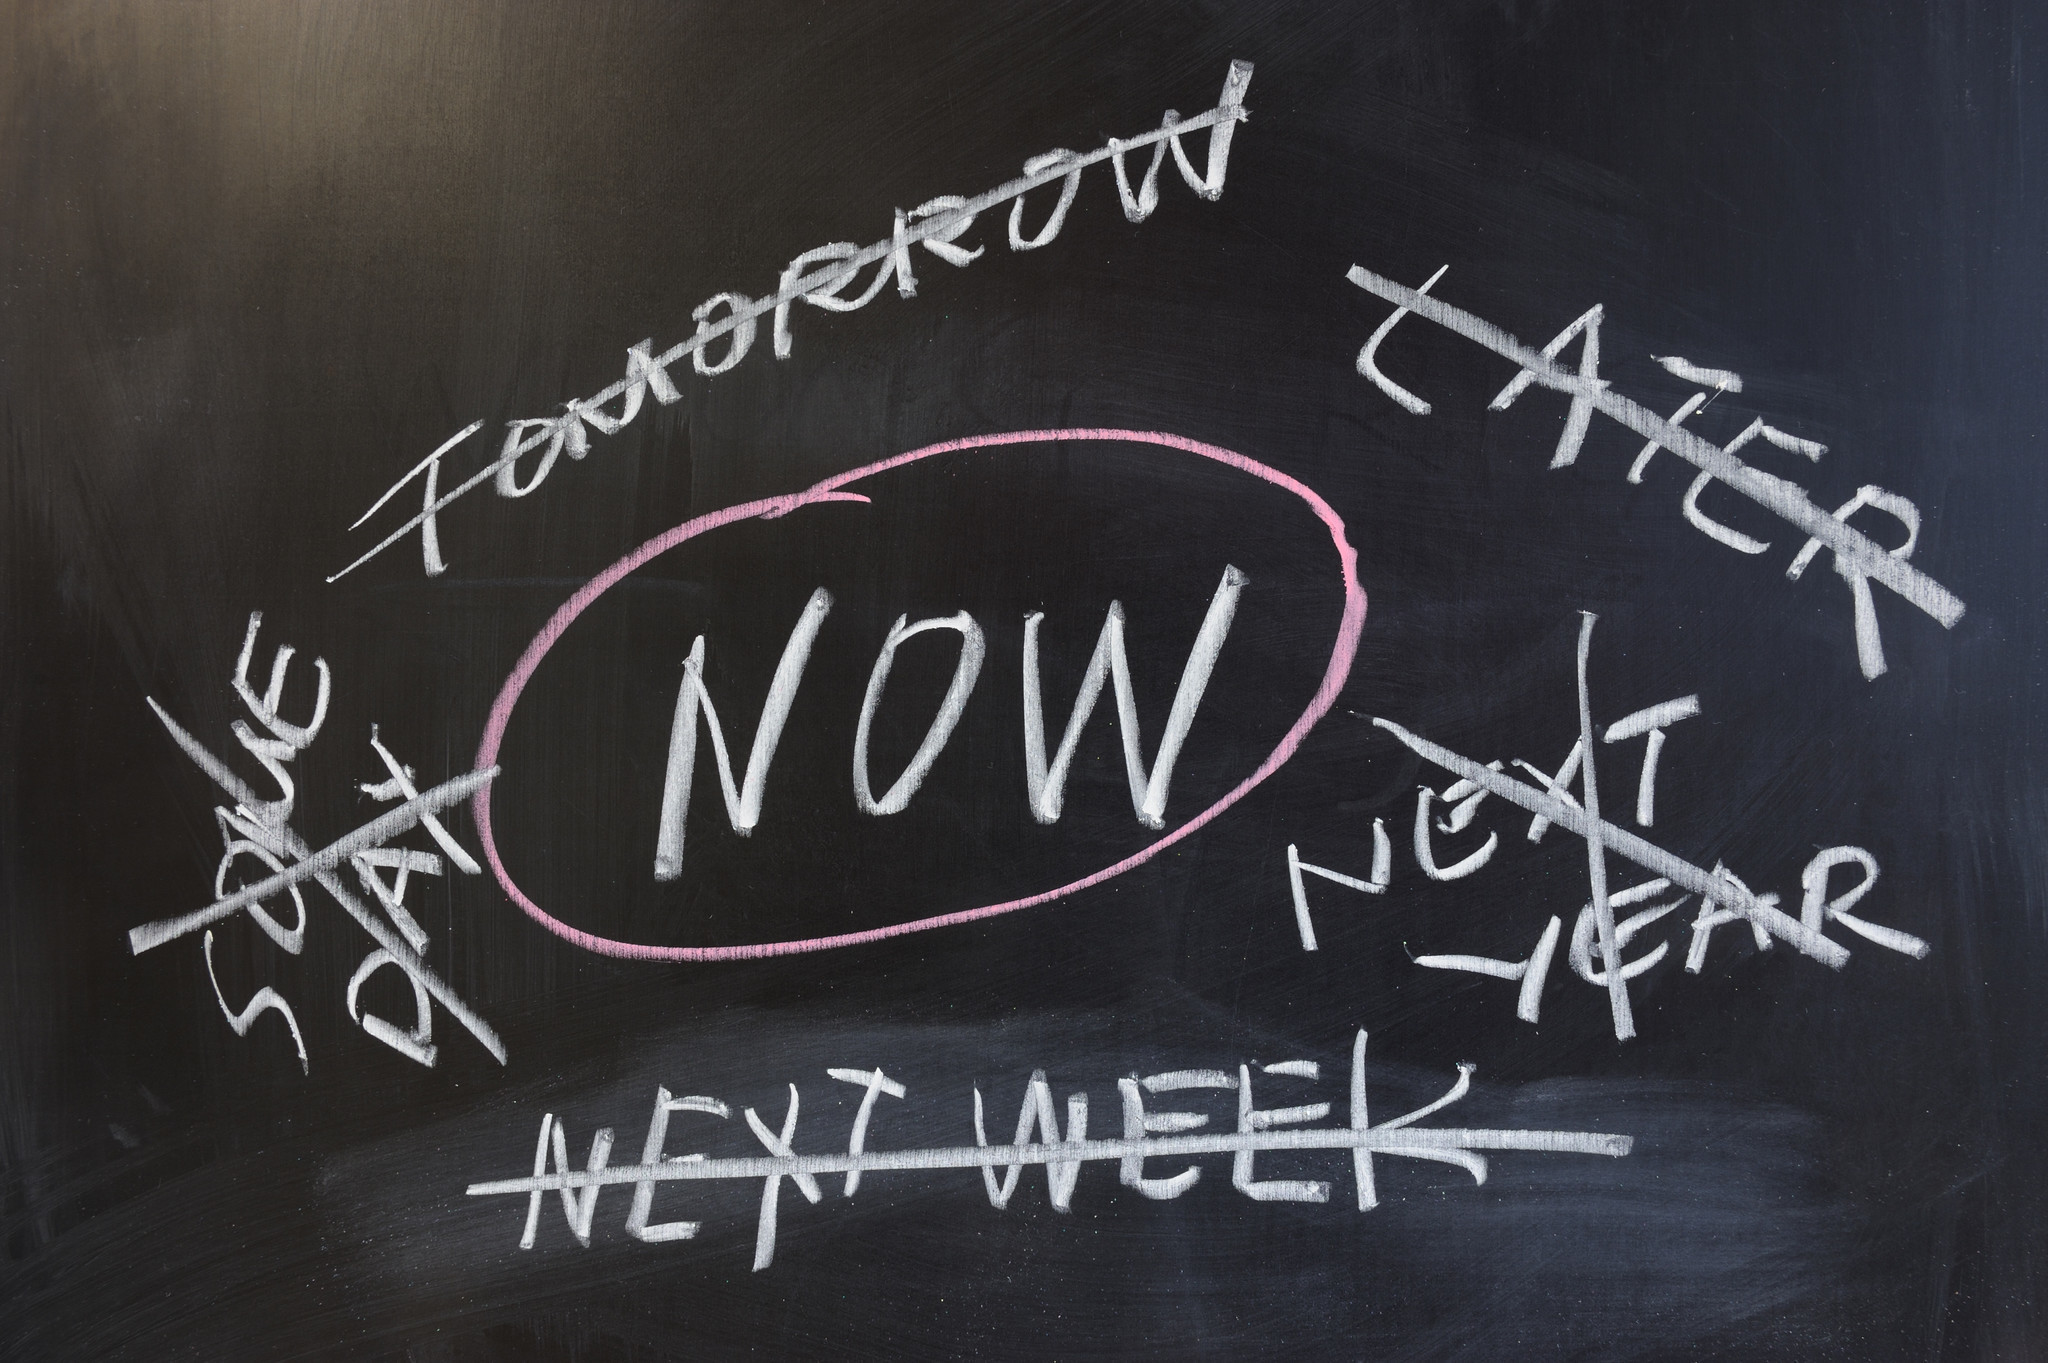 TOMORROW
LATER
SOME
DAY
NOW
NEXT
YEAR
NEXT WEEK